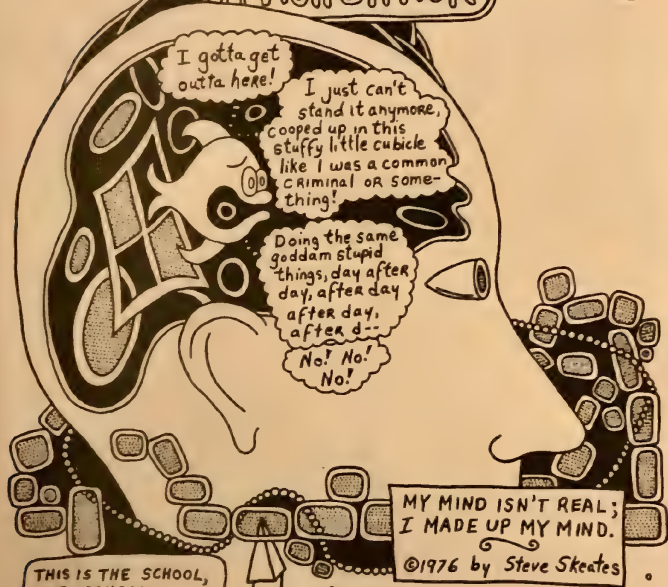 I gotta get
outta here!
I just can't
stand it anymore,
cooped up in this
stuffy little cubicle
like I was a common
criminal or some-
thing!
Doing the same
goddam stupid
things, day after
day, after day
after day,
after d--
No! No!
No!
MY MIND ISN'T REAL;
I MADE UP MY MIND.
©1976 by Steve Skeates
THIS IS THE SCHOOL,
9